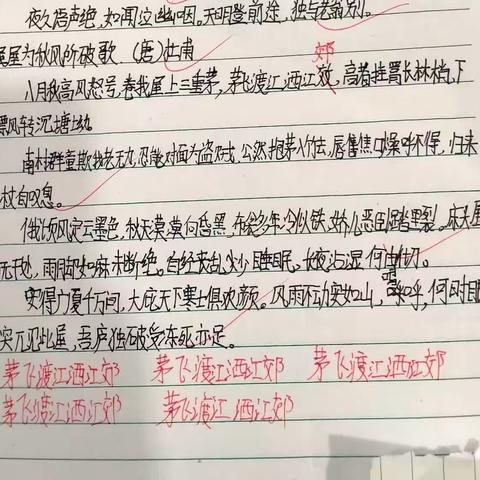 夜久语声绝,如闻泣幽咽。天明登前途,独与老翁别。
屋为秋风所破歌 (唐)杜甫
八月秋高风怒号,卷我屋上三重茅,茅飞渡江洒江郊,高者挂罥长林梢,下
飘风转沉塘坳。
南村群童欺我老无力,忍能对面为盗贼,公然抱茅入竹去,唇焦口燥呼不得,归来
杖自叹息。
俄顷风定云墨色,秋天漠漠向昏黑,布衾多年冷似铁,娇儿恶卧踏里裂。床头屋
无干处,雨脚如麻未断绝。自经丧乱少睡眠。长夜沾湿何由彻。
安得广厦千万间,大庇天下寒士俱欢颜。风雨不动安如山,呜呼,何时眼
突兀见此屋,吾庐独破受冻死亦足。
茅飞渡江洒江郊 茅飞渡江洒江郊 茅飞渡江洒江郊
茅飞渡江洒江郊 茅飞渡江洒江郊